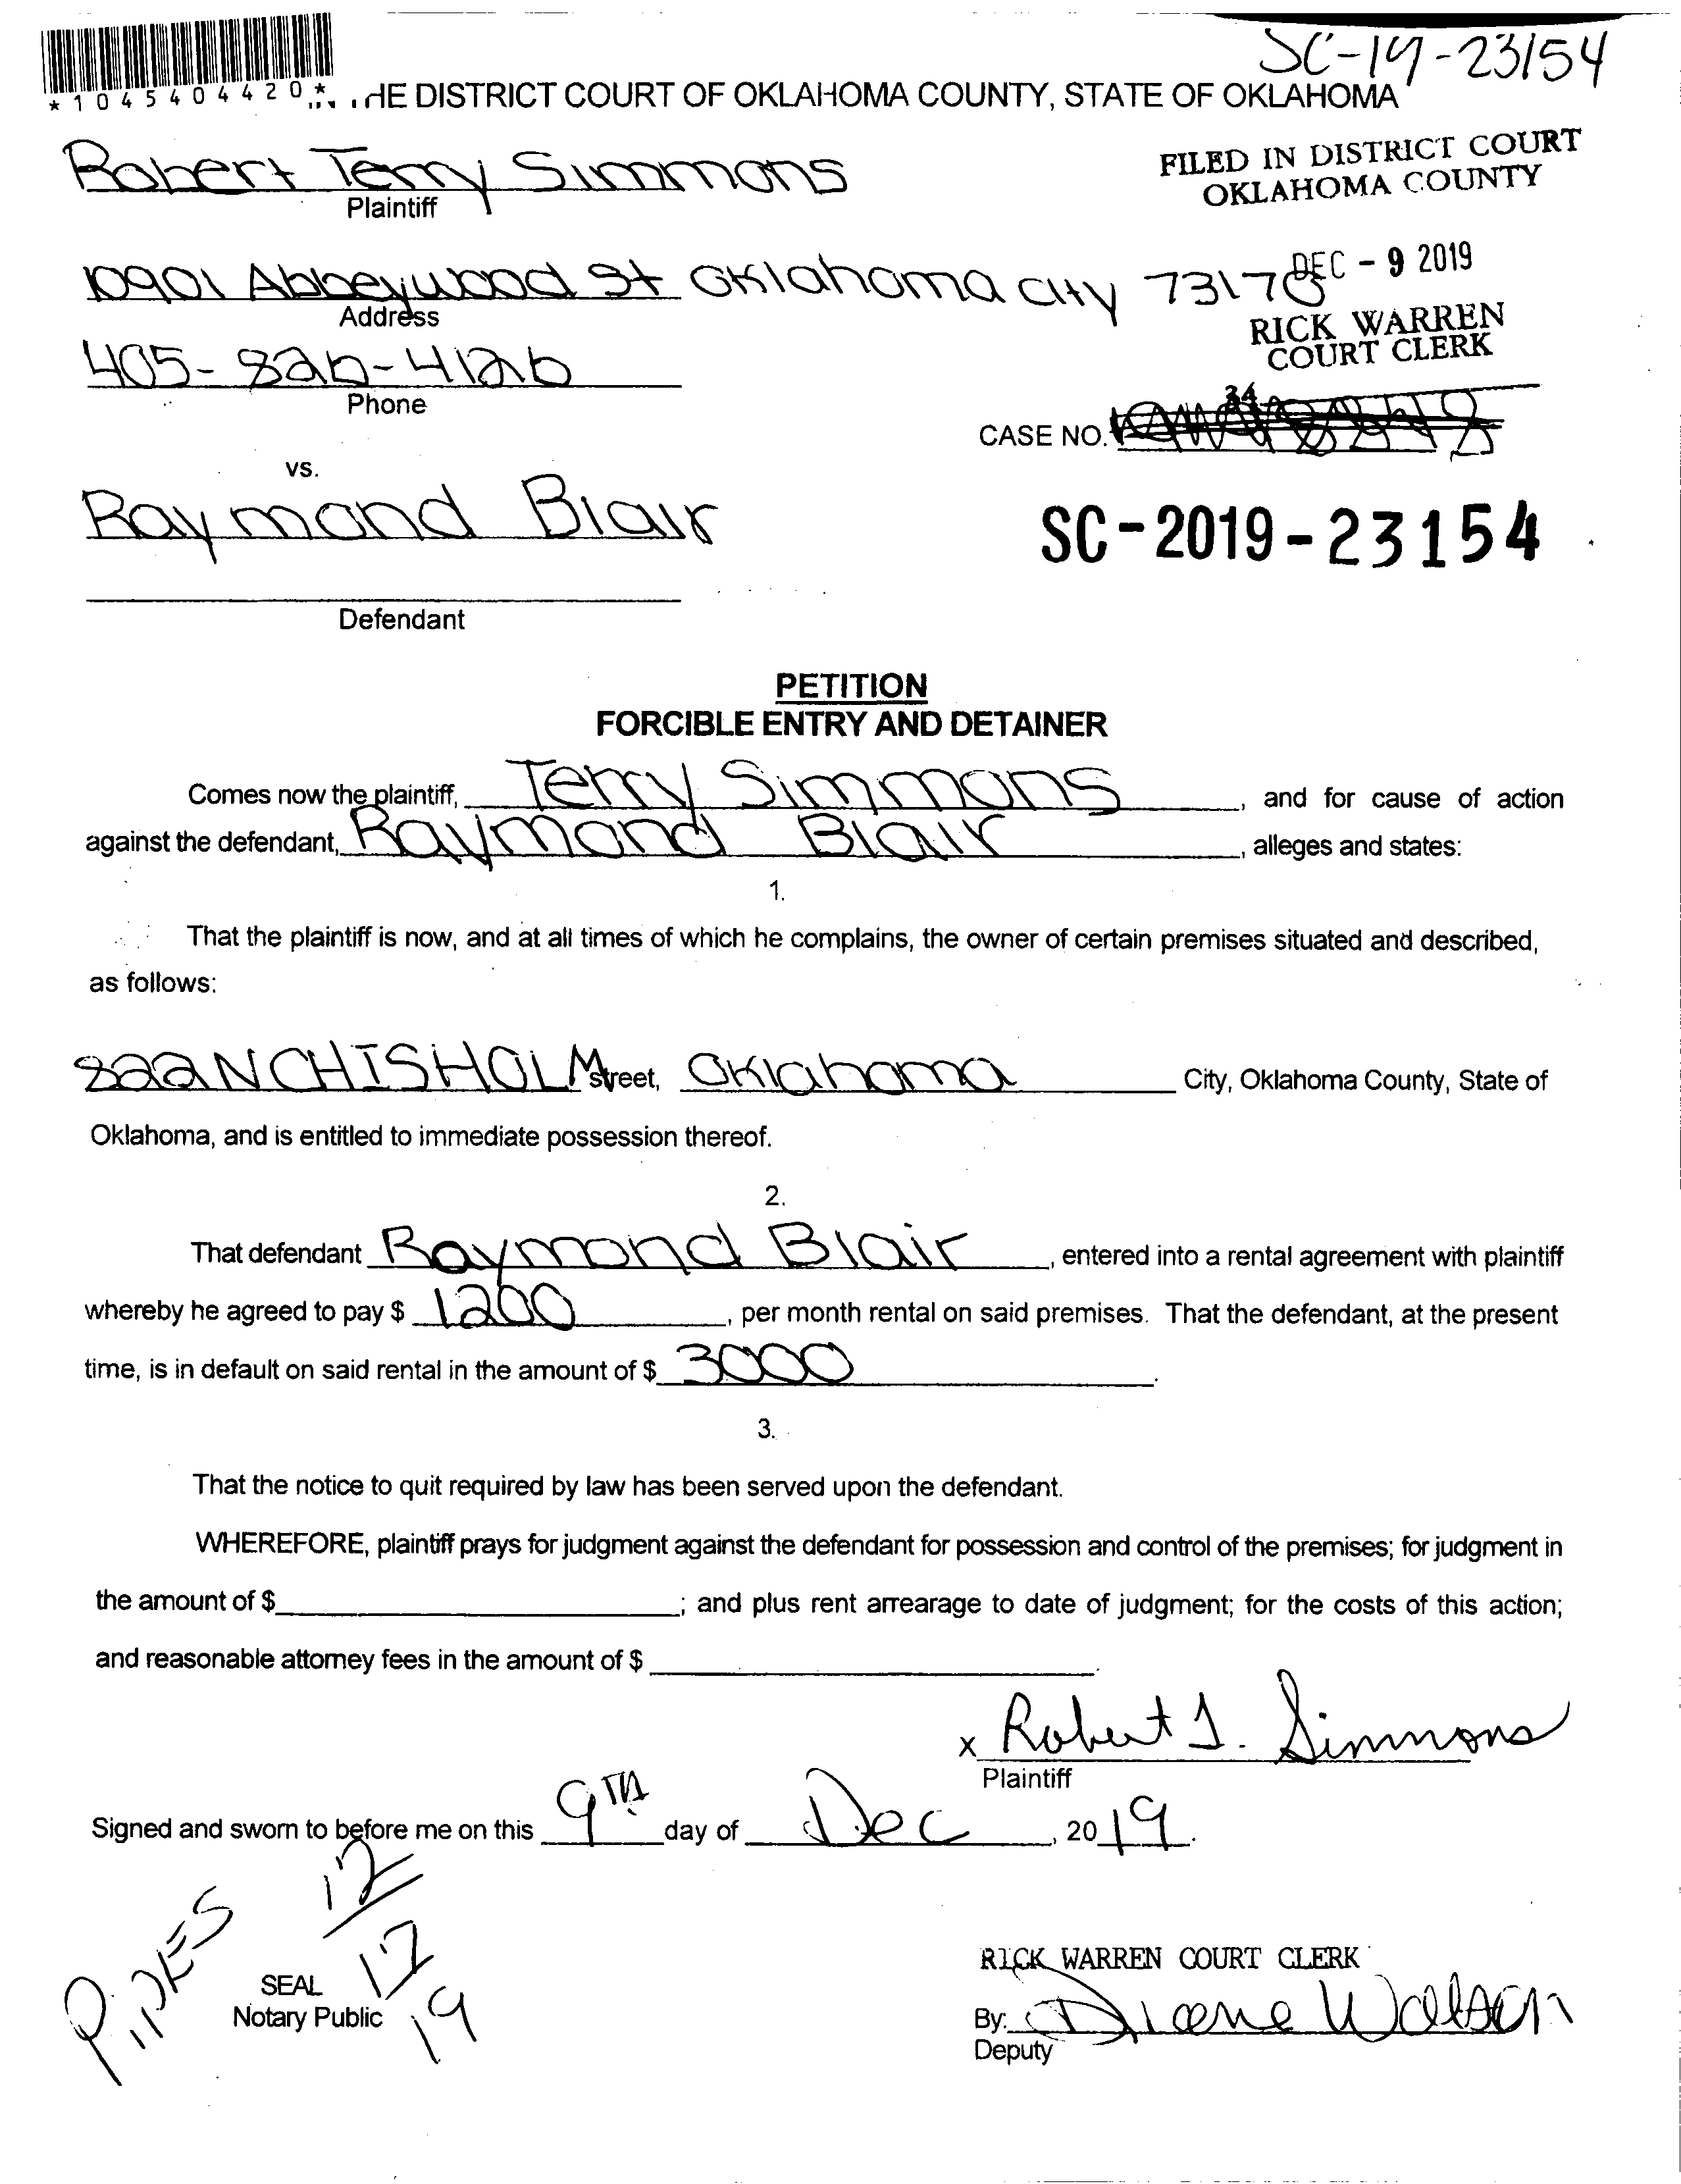 SC-19-23154
*1045404420*
HE DISTRICT COURT OF OKLAHOMA COUNTY, STATE OF OKLAHOMA
Robert Terry Simmons
Plaintiff
FILED IN DISTRICT COURT
OKLAHOMA COUNTY
10901 Abbeywood St Oklahoma City 73170
Address
DEC - 9 2019
RICK WARREN
COURT CLERK
405-826-4126
Phone
34
CASE NO.
vs.
Raymond Blair
SC-2019-23154
Defendant
PETITION
FORCIBLE ENTRY AND DETAINER
Comes now the plaintiff, Terry Simmons, and for cause of action
against the defendant, Raymond Blair, alleges and states:
1.
That the plaintiff is now, and at all times of which he complains, the owner of certain premises situated and described,
as follows:
822 N CHISHOLM Street, Oklahoma City, Oklahoma County, State of
Oklahoma, and is entitled to immediate possession thereof.
2.
That defendant Raymond Blair, entered into a rental agreement with plaintiff
whereby he agreed to pay $ 1200, per month rental on said premises. That the defendant, at the present
time, is in default on said rental in the amount of $ 3000.
3.
That the notice to quit required by law has been served upon the defendant.
WHEREFORE, plaintiff prays for judgment against the defendant for possession and control of the premises; for judgment in
the amount of $ ; and plus rent arrearage to date of judgment; for the costs of this action;
and reasonable attorney fees in the amount of $ .
x Robert T. Simmons
Plaintiff
Signed and sworn to before me on this 9TH day of Dec, 2019.
12
12
19
RICK WARREN COURT CLERK
SEAL
Notary Public
By: Diane Watson
Deputy